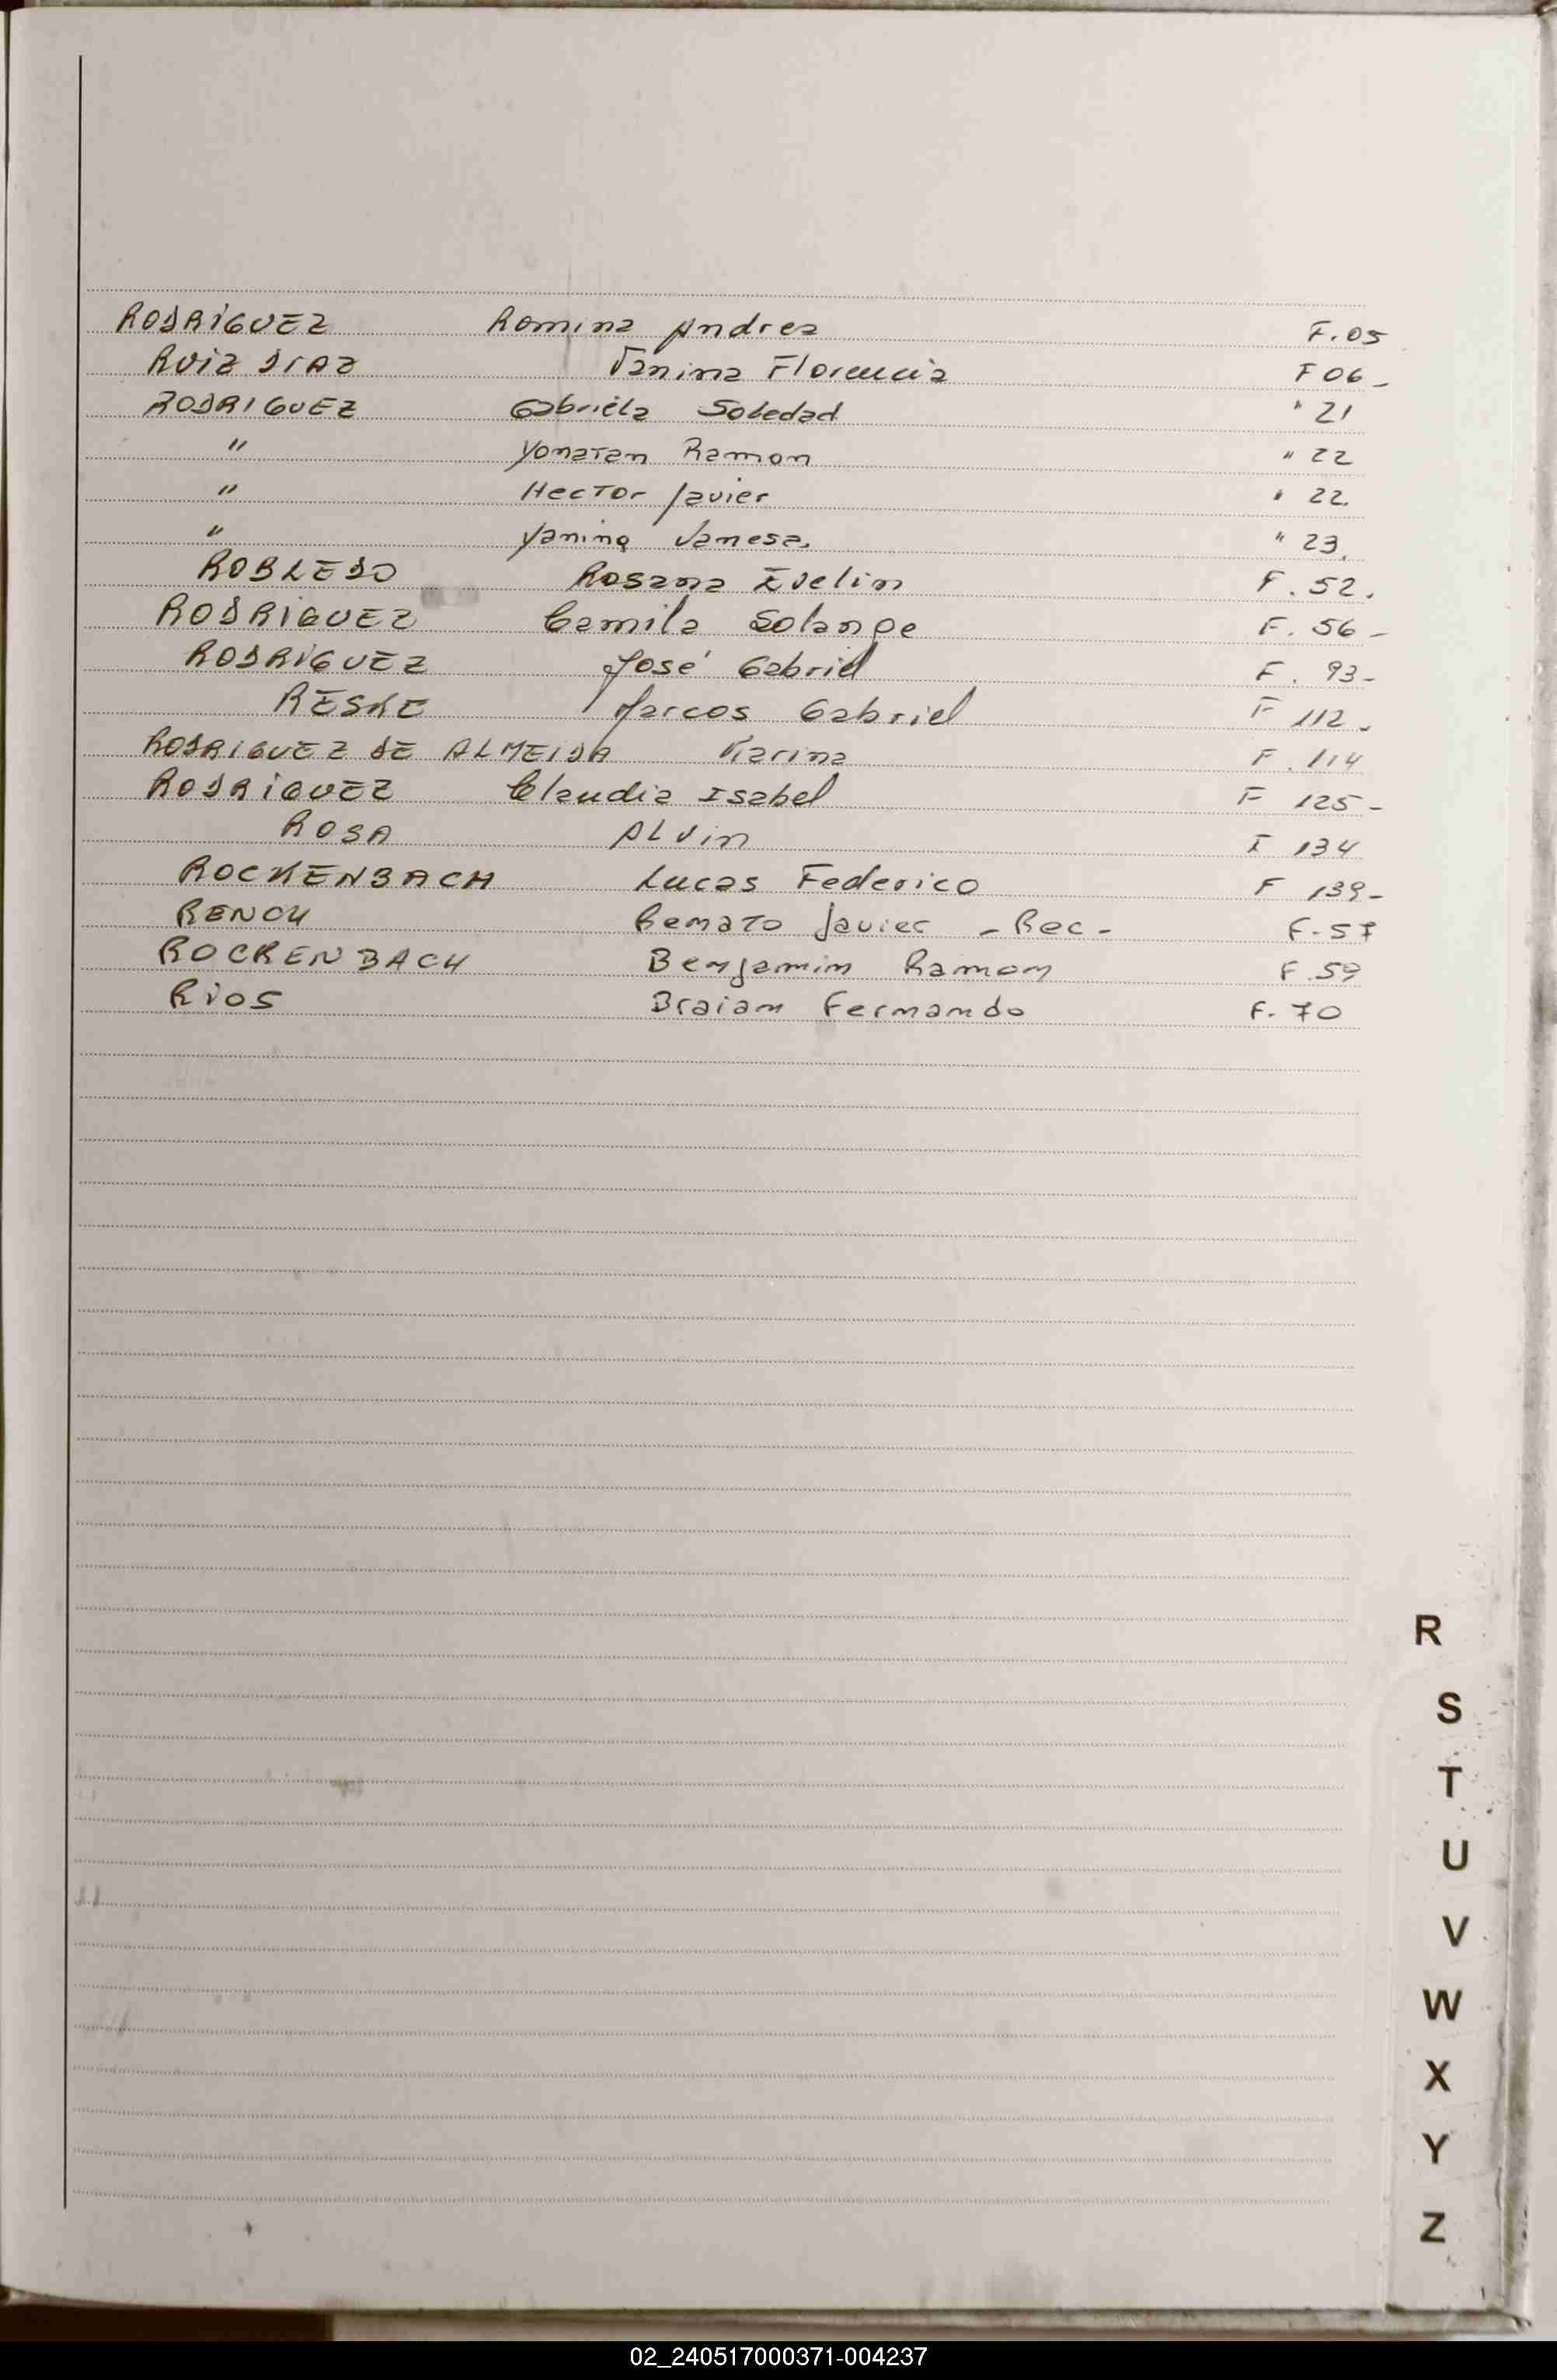 RODRIGUEZ Romina Andrea F. 05
RUIZ DIAZ Vanina Florencia F 06 -
RODRIGUEZ Gabriela Soledad " 21
" Yonatan Ramon " 22
" Hector Javier " 22.
" Yanina Vanesa. " 23.
ROBLEDO Rosana Evelin F. 52.
RODRIGUEZ Camila Solange F. 56 -
RODRIGUEZ José Gabriel F. 93 -
RESKE Marcos Gabriel F 112 -
RODRIGUEZ DE ALMEIDA Karina F. 114
RODRIGUEZ Claudia Isabel F 125 -
ROSA ALVin F 134
ROCKENBACH Lucas Federico F 139 -
RENCH Renato Javier - Rec - F. 57
ROCKENBACH Benjamin Ramon F. 59
Rios Braian Fernando F. 70
R
S
T
U
V
W
X
Y
Z
02_240517000371-004237